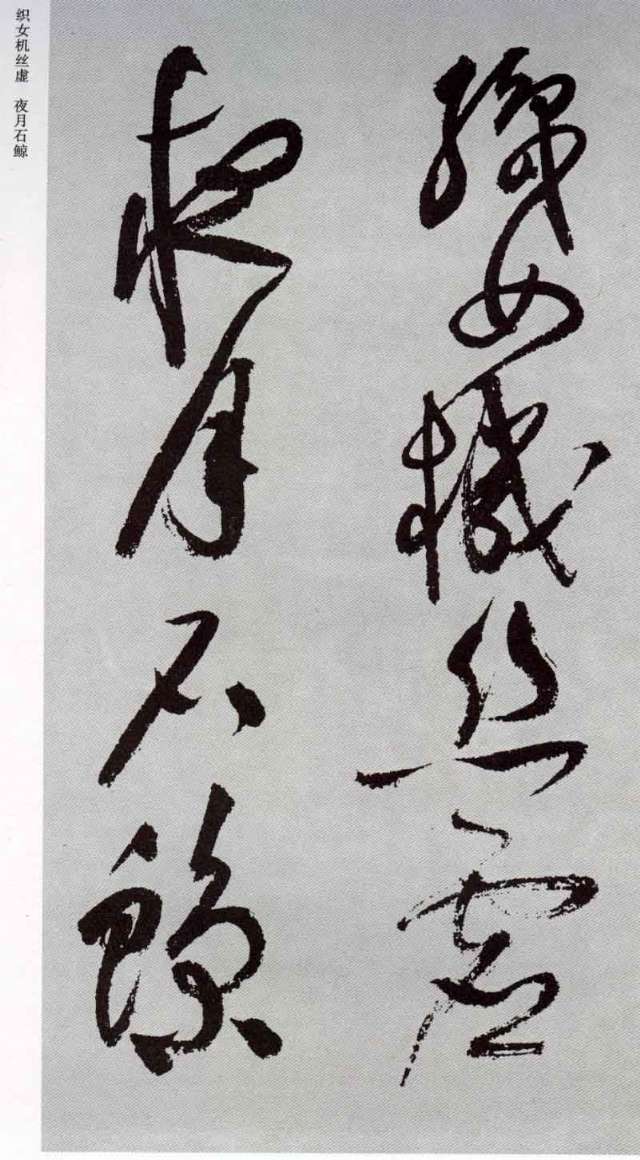 織女機絲虚
夜月石鯨
织女机丝虚　夜月石鲸